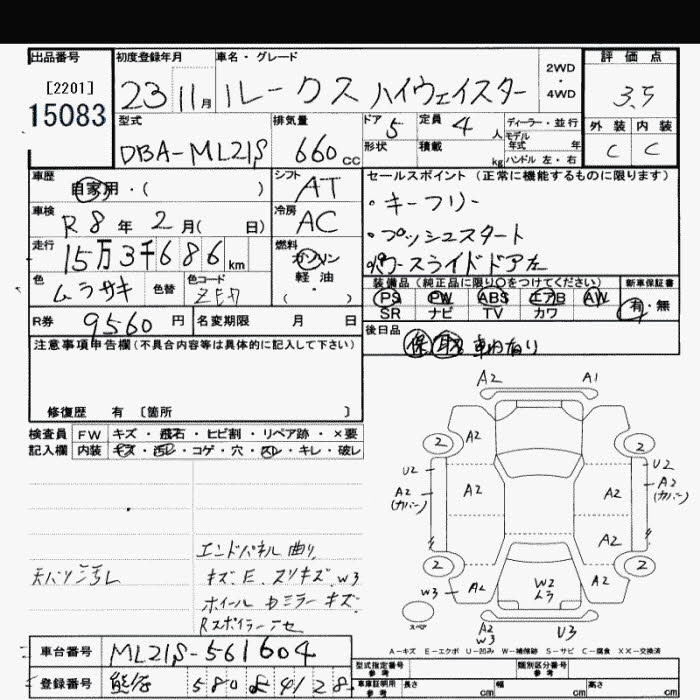 出品番号 初度登録年月 車名・グレード 評価点
[2201] 2WD・4WD
15083 23 11月 ルークス ハイウェイスター 3.5
型式 排気量 ドア 定員 ディーラー・並行 外装 内装
DBA-ML21S 660cc 5 4人 モデル年式 年 C C
形状 積載 kg ハンドル 左・右
車歴 自家用・( ) シフト AT セールスポイント(正常に機能するものに限ります)
車検 R8年2月( 日) 冷房 AC ・キーフリー
・プッシュスタート
走行 15万3千686km 燃料 ガソリン 軽油 ・( ) ・パワースライドドア左
色 ムラサキ 色替 色コード 装備品(純正品に限り○をつけてください) 新車保証書
PS PW ABS エアB AW 有・無
SR ナビ TV カワ
R券 9560円 名変期限 月 日 後日品 保 取
注意事項申告欄(不具合内容等は具体的に記入して下さい)
修復歴 有 〔箇所 〕
検査員 FW キズ・飛石・ヒビ割・リペア跡・×要
記入欄 内装 キズ・汚レ・コゲ・穴・スレ・キレ・破レ
A2 A1
2 A2 2
U2 A2 (カバー) A2 A2 U2 A2 (カバー)
A2
2 2
W3 A2 W2 A2
スペア
A2 W3 U3
エンドパネル曲り
天バリ汚レ キズ、E、スリキズ、W3
ホイール ドミラーキズ
Rスポイラーアセ
車台番号 ML21S-561604
A－キズ E－エクボ U－凹み W－補修跡 S－サビ C－腐食 XX－交換済
登録番号 熊谷 580 8128
型式指定番号 参考 類別区分番号 参考
車庫証明用 参考 長さ cm 幅 cm 高さ cm